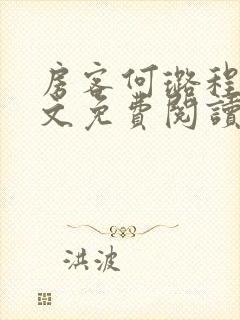 房客何璐程
文免費閱讀
洪波